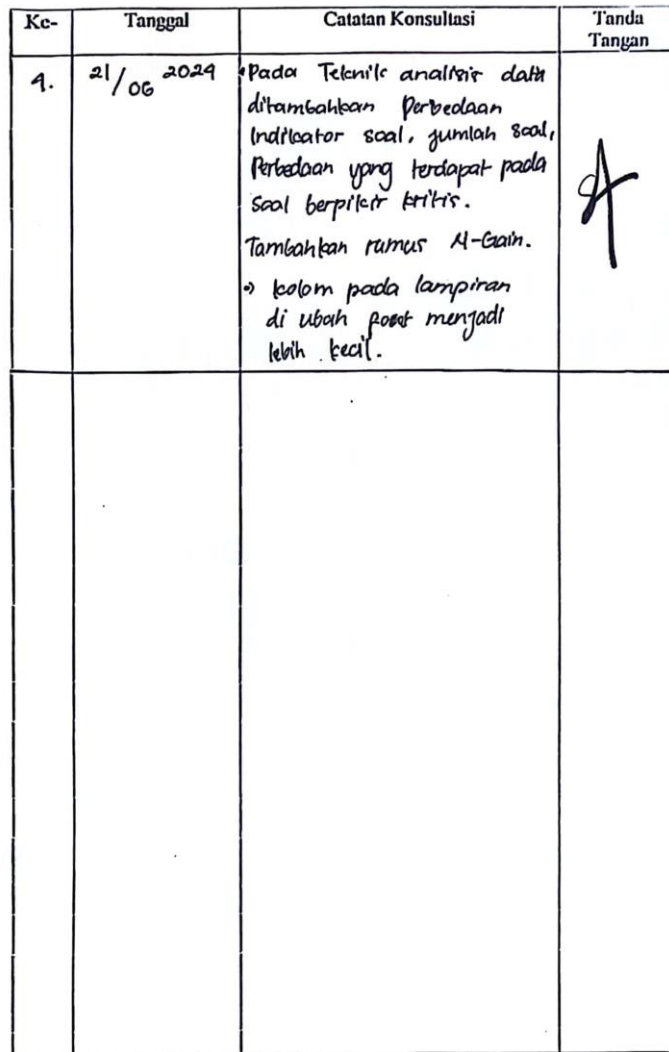 Ke- Tanggal Catatan Konsultasi Tanda
Tangan
4. 21/06 2024 • Pada Teknik analisis data
ditambahkan Perbedaan
Indikator soal, jumlah soal,
Perbedaan yang terdapat pada
soal berpikir kritis.
Tambahkan rumus N-Gain.
•) kolom pada lampiran
di ubah menjadi
lebih kecil.